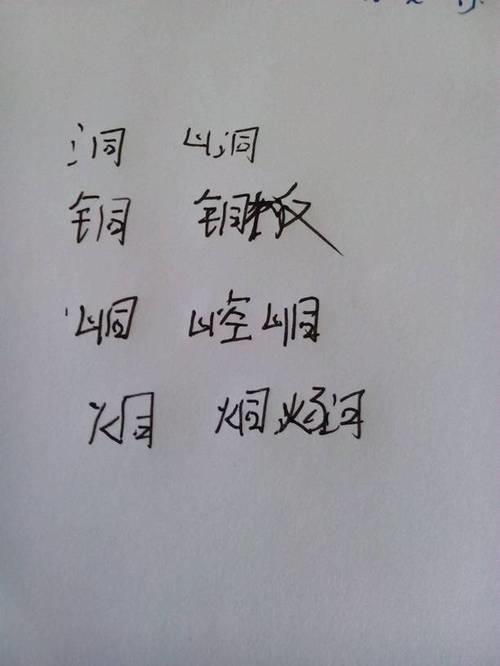 洞 山洞
铜 铜板
峒 崆峒
烔 烔炀河